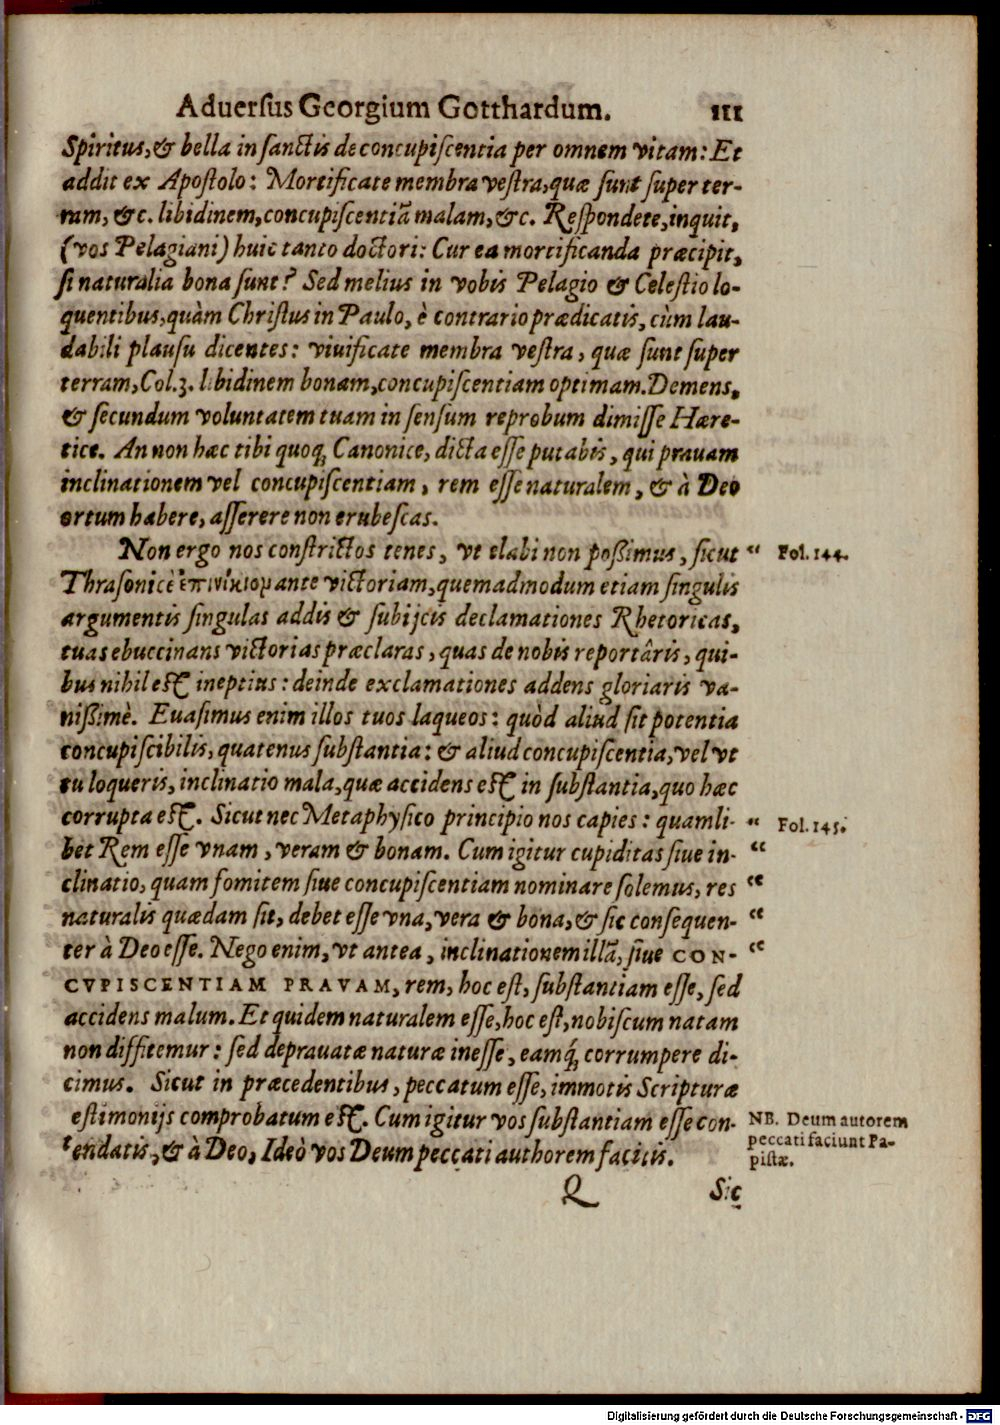 Aduersus Georgium Gotthardum. 111
Spiritus, & bella in sanctis de concupiscentia per omnem vitam: Et
addit ex Apostolo: Mortificate membra vestra, quæ sunt super ter-
ram, &c. libidinem, concupiscentiã malam, &c. Respondete, inquit,
(vos Pelagiani) huic tanto doctori: Cur ea mortificanda præcipit,
si naturalia bona sunt? Sed melius in vobis Pelagio & Celestio lo-
quentibus, quàm Christus in Paulo, è contrario prædicatis, cùm lau-
dabili plausu dicentes: viuificate membra vestra, quæ sunt super
terram, Col.3. libidinem bonam, concupiscentiam optimam. Demens,
& secundum voluntatem tuam in sensum reprobum dimisse Hære-
tice. An non hæc tibi quoq; Canonice, dicta esse putabis, qui prauam
inclinationem vel concupiscentiam, rem esse naturalem, & à Deo
ortum habere, asserere non erubescas.
Non ergo nos constrictos tenes, vt elabi non possimus, sicut “ Fol. 144.
Thrasonicè ante victoriam, quemadmodum etiam singulis
argumentis singulas addis & subijcis declamationes Rhetoricas,
tuas ebuccinans victorias præclaras, quas de nobis reportâris, qui-
bus nihil est ineptius: deinde exclamationes addens gloriaris va-
nissimè. Euasimus enim illos tuos laqueos: quòd aliud sit potentia
concupiscibilis, quatenus substantia: & aliud concupiscentia, vel vt
tu loqueris, inclinatio mala, quæ accidens est in substantia, quo hæc
corrupta est. Sicut nec Metaphysico principio nos capies: quamli- “ Fol. 145.
bet Rem esse vnam, veram & bonam. Cum igitur cupiditas siue in- “
clinatio, quam fomitem siue concupiscentiam nominare solemus, res “
naturalis quædam sit, debet esse vna, vera & bona, & sic consequen- “
ter à Deo esse. Nego enim, vt antea, inclinationem illã, siue CON- “
CVPISCENTIAM PRAVAM, rem, hoc est, substantiam esse, sed
accidens malum. Et quidem naturalem esse, hoc est, nobiscum natam
non diffitemur: sed deprauatæ naturæ inesse, eamq́; corrumpere di-
cimus. Sicut in præcedentibus, peccatum esse, immotis Scripturæ
estimonijs comprobatum est. Cum igitur vos substantiam esse con-
tendatis, & à Deo, Ideò vos Deum peccati authorem facitis.
NB. Deum autorem
peccati faciunt Pa-
pistæ.
Q Sic
Digitalisierung gefördert durch die Deutsche Forschungsgemeinschaft - DFG